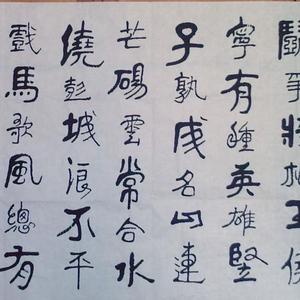 鬪爭將相王侯
寧有種英雄竪
子孰成名山連
芒碭雲常合水
繞彭城浪不平
戲馬歌風總有